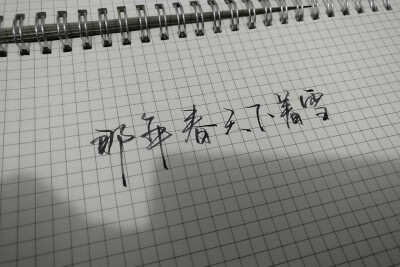 那年春天下着雪